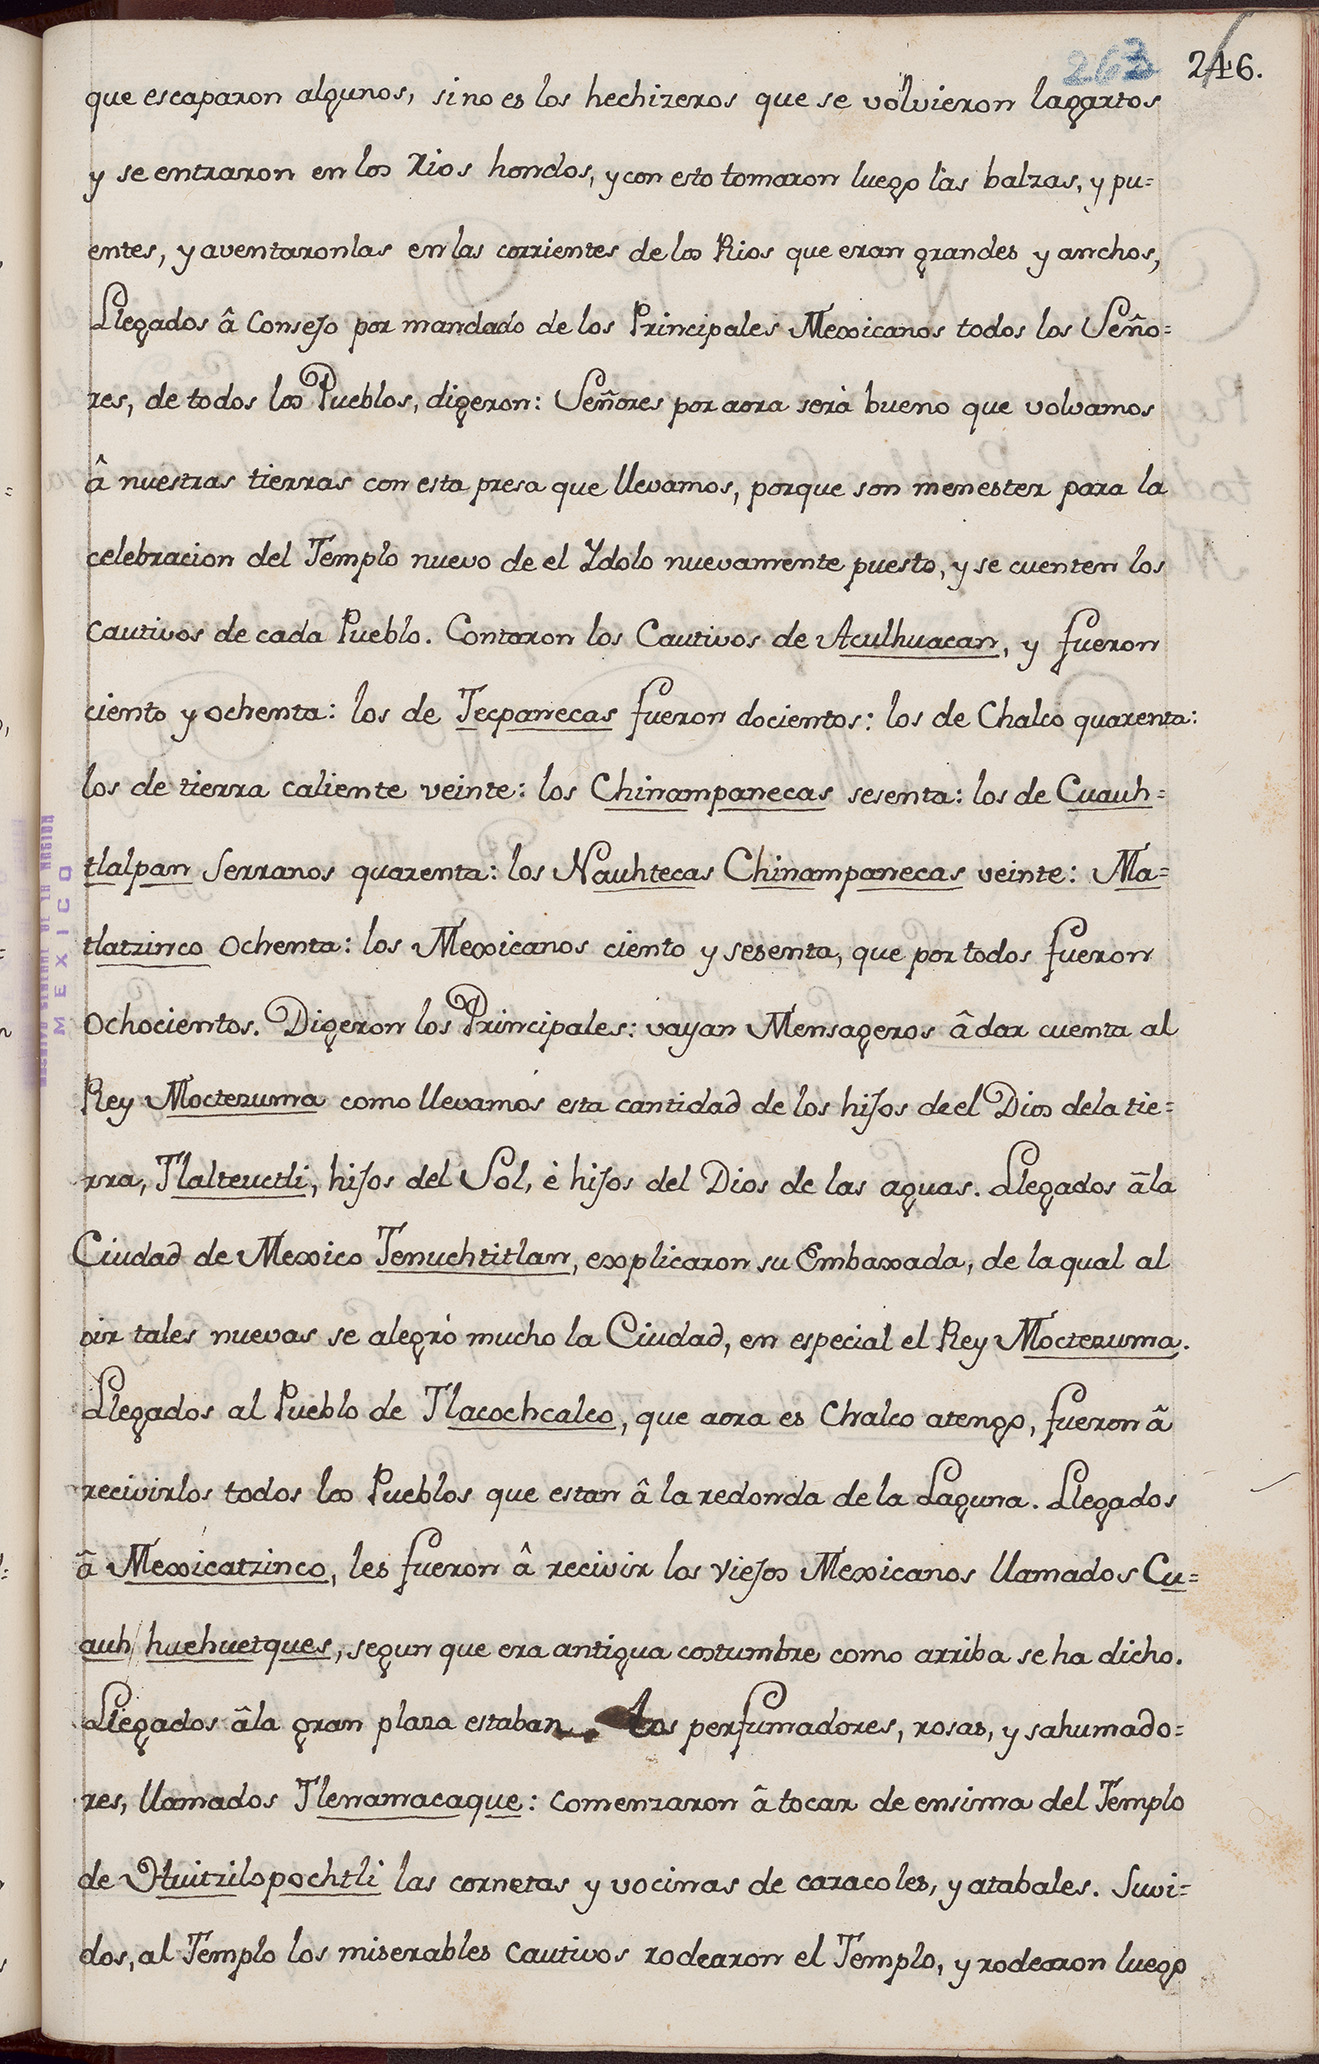 263 246.
que escaparon algunos, sino es los hechizeros que se volvieron lagartos
y se entraron en los Rios hondos, y con esto tomaron luego las balzas, y pu=
entes, y aventaronlas en las corrientes de los Rios que eran grandes y anchos,
Llegados â Consejo por mandado de los Principales Mexicanos todos los Seño=
res, de todos los Pueblos, digeron: Señores por aora serà bueno que volvamos
â nuestras tierras con esta presa que llevamos, porque son menester para la
celebracion del Templo nuevo de el Ydolo nuevamente puesto, y se cuenten los
cautivos de cada Pueblo. Contaron los Cautivos de Aculhuacan, y fueron
ciento y ochenta: los de Tecpanecas fueron docientos: los de Chalco quarenta:
los de tierra caliente veinte: los Chinampanecas sesenta: los de Cuauh=
tlalpan Serranos quarenta: los Nauhtecas Chinampanecas veinte: Ma=
tlatzinco ochenta: los Mexicanos ciento y sesenta, que por todos fueron
ochocientos. Digeron los Principales: vayan Mensageros â dar cuenta al
Rey Moctezuma como llevamos esta cantidad de los hijos de el Dios dela tie=
rra, Tlalteuctli, hijos del Sol, è hijos del Dios de las aguas. Llegados âla
Ciudad de Mexico Tenuchtitlan, explicaron su Embaxada, de la qual al
oir tales nuevas se alegrò mucho la Ciudad, en especial el Rey Moctezuma.
Llegados al Pueblo de Tlacochcalco, que aora es Chalco atengo, fueron â
recivirlos todos los Pueblos que estan â la redonda de la Laguna. Llegados
â Mexicatzinco, les fueron â recivir los viejos Mexicanos llamados Cu=
auh huehuetques, segun que era antigua costumbre como arriba se ha dicho.
Llegados âla gran plaza estaban los perfumadores, rosas, y sahumado=
res, llamados Tlenamacaque: comenzaron â tocar de ensima del Templo
de Huitzilopochtli las cornetas y vocinas de caracoles, y atabales. Suvi=
dos, al Templo los miserables cautivos rodearon el Templo, y rodearon luego
ARCHIVO GENERAL DE LA NACION
MEXICO